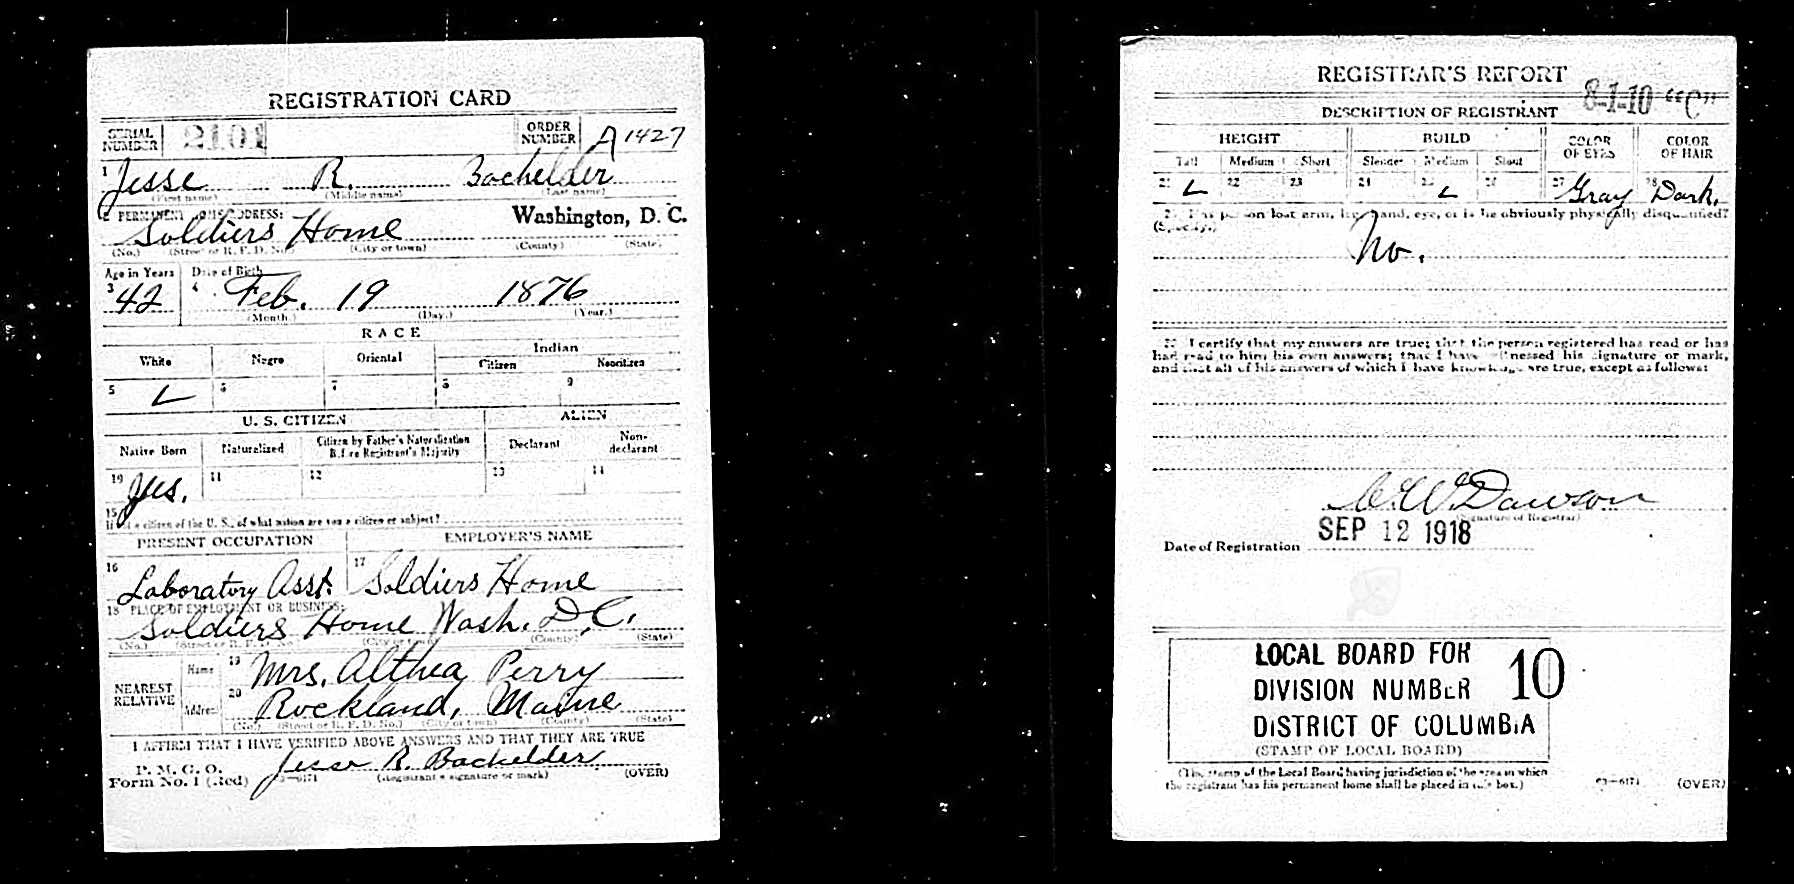 REGISTRATION CARD
SERIAL NUMBER 2101 ORDER NUMBER A 1427
1 Jesse R. Bachelder
(First name) (Middle name) (Last name)
2 PERMANENT HOME ADDRESS:
Soldiers Home Washington, D. C.
(No.) (Street or R. F. D. No.) (City or town) (County) (State)
Age in Years Date of Birth
3 42 4 Feb. 19 1876
(Month.) (Day.) (Year.)
RACE
White Negro Oriental Indian
Citizen Noncitizen
5 L 6 7 8 9
U. S. CITIZEN ALIEN
Native Born Naturalized Citizen by Father's Naturalization Before Registrant's Majority Declarant Non-declarant
10 Yes. 11 12 13 14
15 If not a citizen of the U. S., of what nation are you a citizen or subject?
PRESENT OCCUPATION EMPLOYER'S NAME
16 Laboratory Asst. 17 Soldiers Home
18 PLACE OF EMPLOYMENT OR BUSINESS:
Soldiers Home Wash. D.C.
(No.) (Street or R. F. D. No.) (City or town) (County) (State)
NEAREST RELATIVE Name 19 Mrs. Althea Perry
Address 20 Rockland, Maine
(No.) (Street or R. F. D. No.) (City or town) (County) (State)
I AFFIRM THAT I HAVE VERIFIED ABOVE ANSWERS AND THAT THEY ARE TRUE
P. M. G. O.
Form No. 1 (Red) 03—6171 Jesse R. Bachelder
(Registrant's signature or mark) (OVER)
REGISTRAR'S REPORT
8-1-10 "C"
DESCRIPTION OF REGISTRANT
HEIGHT BUILD COLOR OF EYES COLOR OF HAIR
Tall Medium Short Slender Medium Stout
21 L 22 23 24 25 L 26 27 Gray 28 Dark.
29 Has person lost arm, leg, hand, eye, or is he obviously physically disqualified?
(Specify.) No.
30 I certify that my answers are true; that the person registered has read or has
had read to him his own answers; that I have witnessed his signature or mark,
and that all of his answers of which I have knowledge are true, except as follows:
C. W. Dawson
(Signature of Registrar)
Date of Registration SEP 12 1918
LOCAL BOARD FOR
DIVISION NUMBER 10
DISTRICT OF COLUMBIA
(STAMP OF LOCAL BOARD)
(The stamp of the Local Board having jurisdiction of the area in which
the registrant has his permanent home shall be placed in this box.)
03—6171 (OVER)